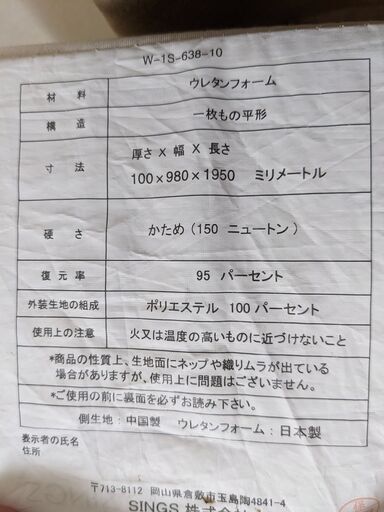 W-1S-638-10
材料 ウレタンフォーム
構造 一枚もの平形
寸法 厚さ X 幅 X 長さ
100×980×1950 ミリメートル
硬さ かため(150 ニュートン)
復元率 95 パーセント
外装生地の組成 ポリエステル 100 パーセント
使用上の注意 火又は温度の高いものに近づけないこと
*商品の性質上、生地面にネップや織りムラが出ている
場合がありますが、使用上に問題はございません。
*ご使用の前に裏面を必ずお読み下さい。
側生地:中国製 ウレタンフォーム:日本製
表示者の氏名
住所
〒713-8112 岡山県倉敷市玉島陶4841-4
SINGS 株式会